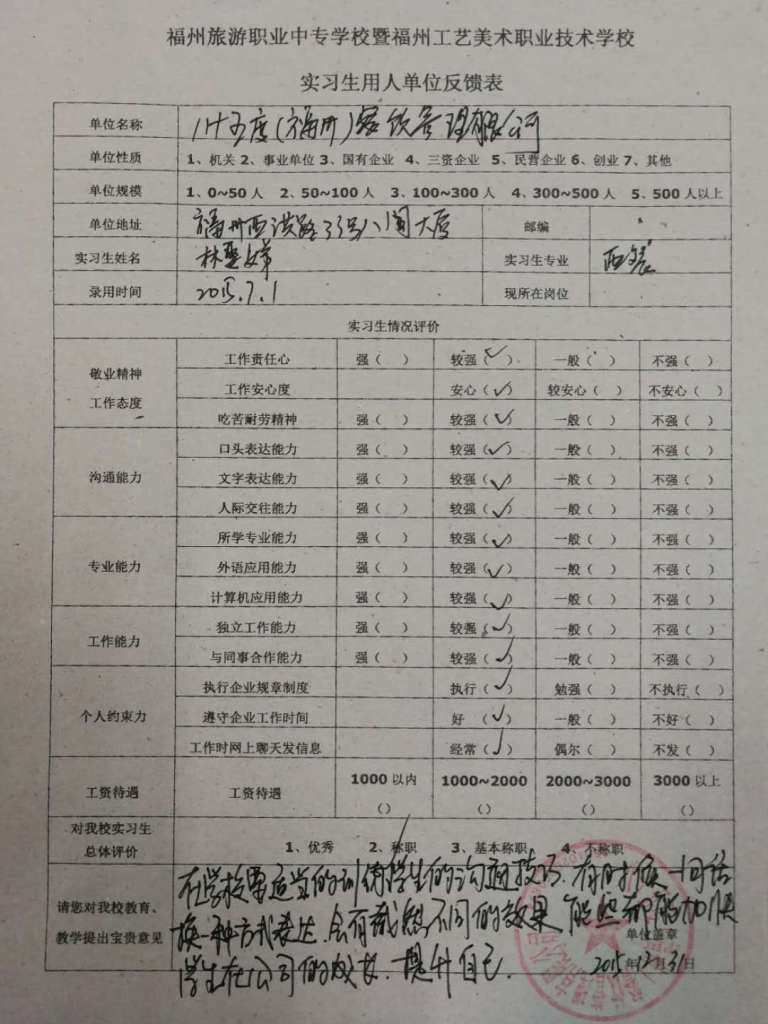 福州旅游职业中专学校暨福州工艺美术职业技术学校
实习生用人单位反馈表
单位名称 八十五度(福州)餐饮管理有限公司
单位性质 1、机关 2、事业单位 3、国有企业 4、三资企业 5、民营企业 6、创业 7、其他
单位规模 1、0~50人 2、50~100人 3、100~300人 4、300~500人 5、500人以上
单位地址 福州西洪路33号八闽大厦 邮编
实习生姓名 林 实习生专业 西
录用时间 2015.7.1 现所在岗位
实习生情况评价
敬业精神 工作态度
工作责任心 强( ) 较强(✓) 一般( ) 不强( )
工作安心度 安心(✓) 较安心( ) 不安心( )
吃苦耐劳精神 强( ) 较强(✓) 一般( ) 不强( )
沟通能力
口头表达能力 强( ) 较强(✓) 一般( ) 不强( )
文字表达能力 强( ) 较强(✓) 一般( ) 不强( )
人际交往能力 强( ) 较强(✓) 一般( ) 不强( )
专业能力
所学专业能力 强( ) 较强(✓) 一般( ) 不强( )
外语应用能力 强( ) 较强(✓) 一般( ) 不强( )
计算机应用能力 强( ) 较强(✓) 一般( ) 不强( )
工作能力
独立工作能力 强( ) 较强(✓) 一般( ) 不强( )
与同事合作能力 强( ) 较强(✓) 一般( ) 不强( )
个人约束力
执行企业规章制度 执行(✓) 勉强( ) 不执行( )
遵守企业工作时间 好(✓) 一般( ) 不好( )
工作时网上聊天发信息 经常(✓) 偶尔( ) 不发( )
工资待遇 工资待遇 1000以内() 1000~2000() 2000~3000() 3000以上()
对我校实习生
总体评价 1、优秀 2、称职 3、基本称职 4、不称职
请您对我校教育、
教学提出宝贵意见
在学校要适当的训练学生的沟通技巧.有时候一句话
换一种方式表达.会有截然不同的效果 能加快
学生在公司的成长.提升自己.
单位盖章
2015年12月31日